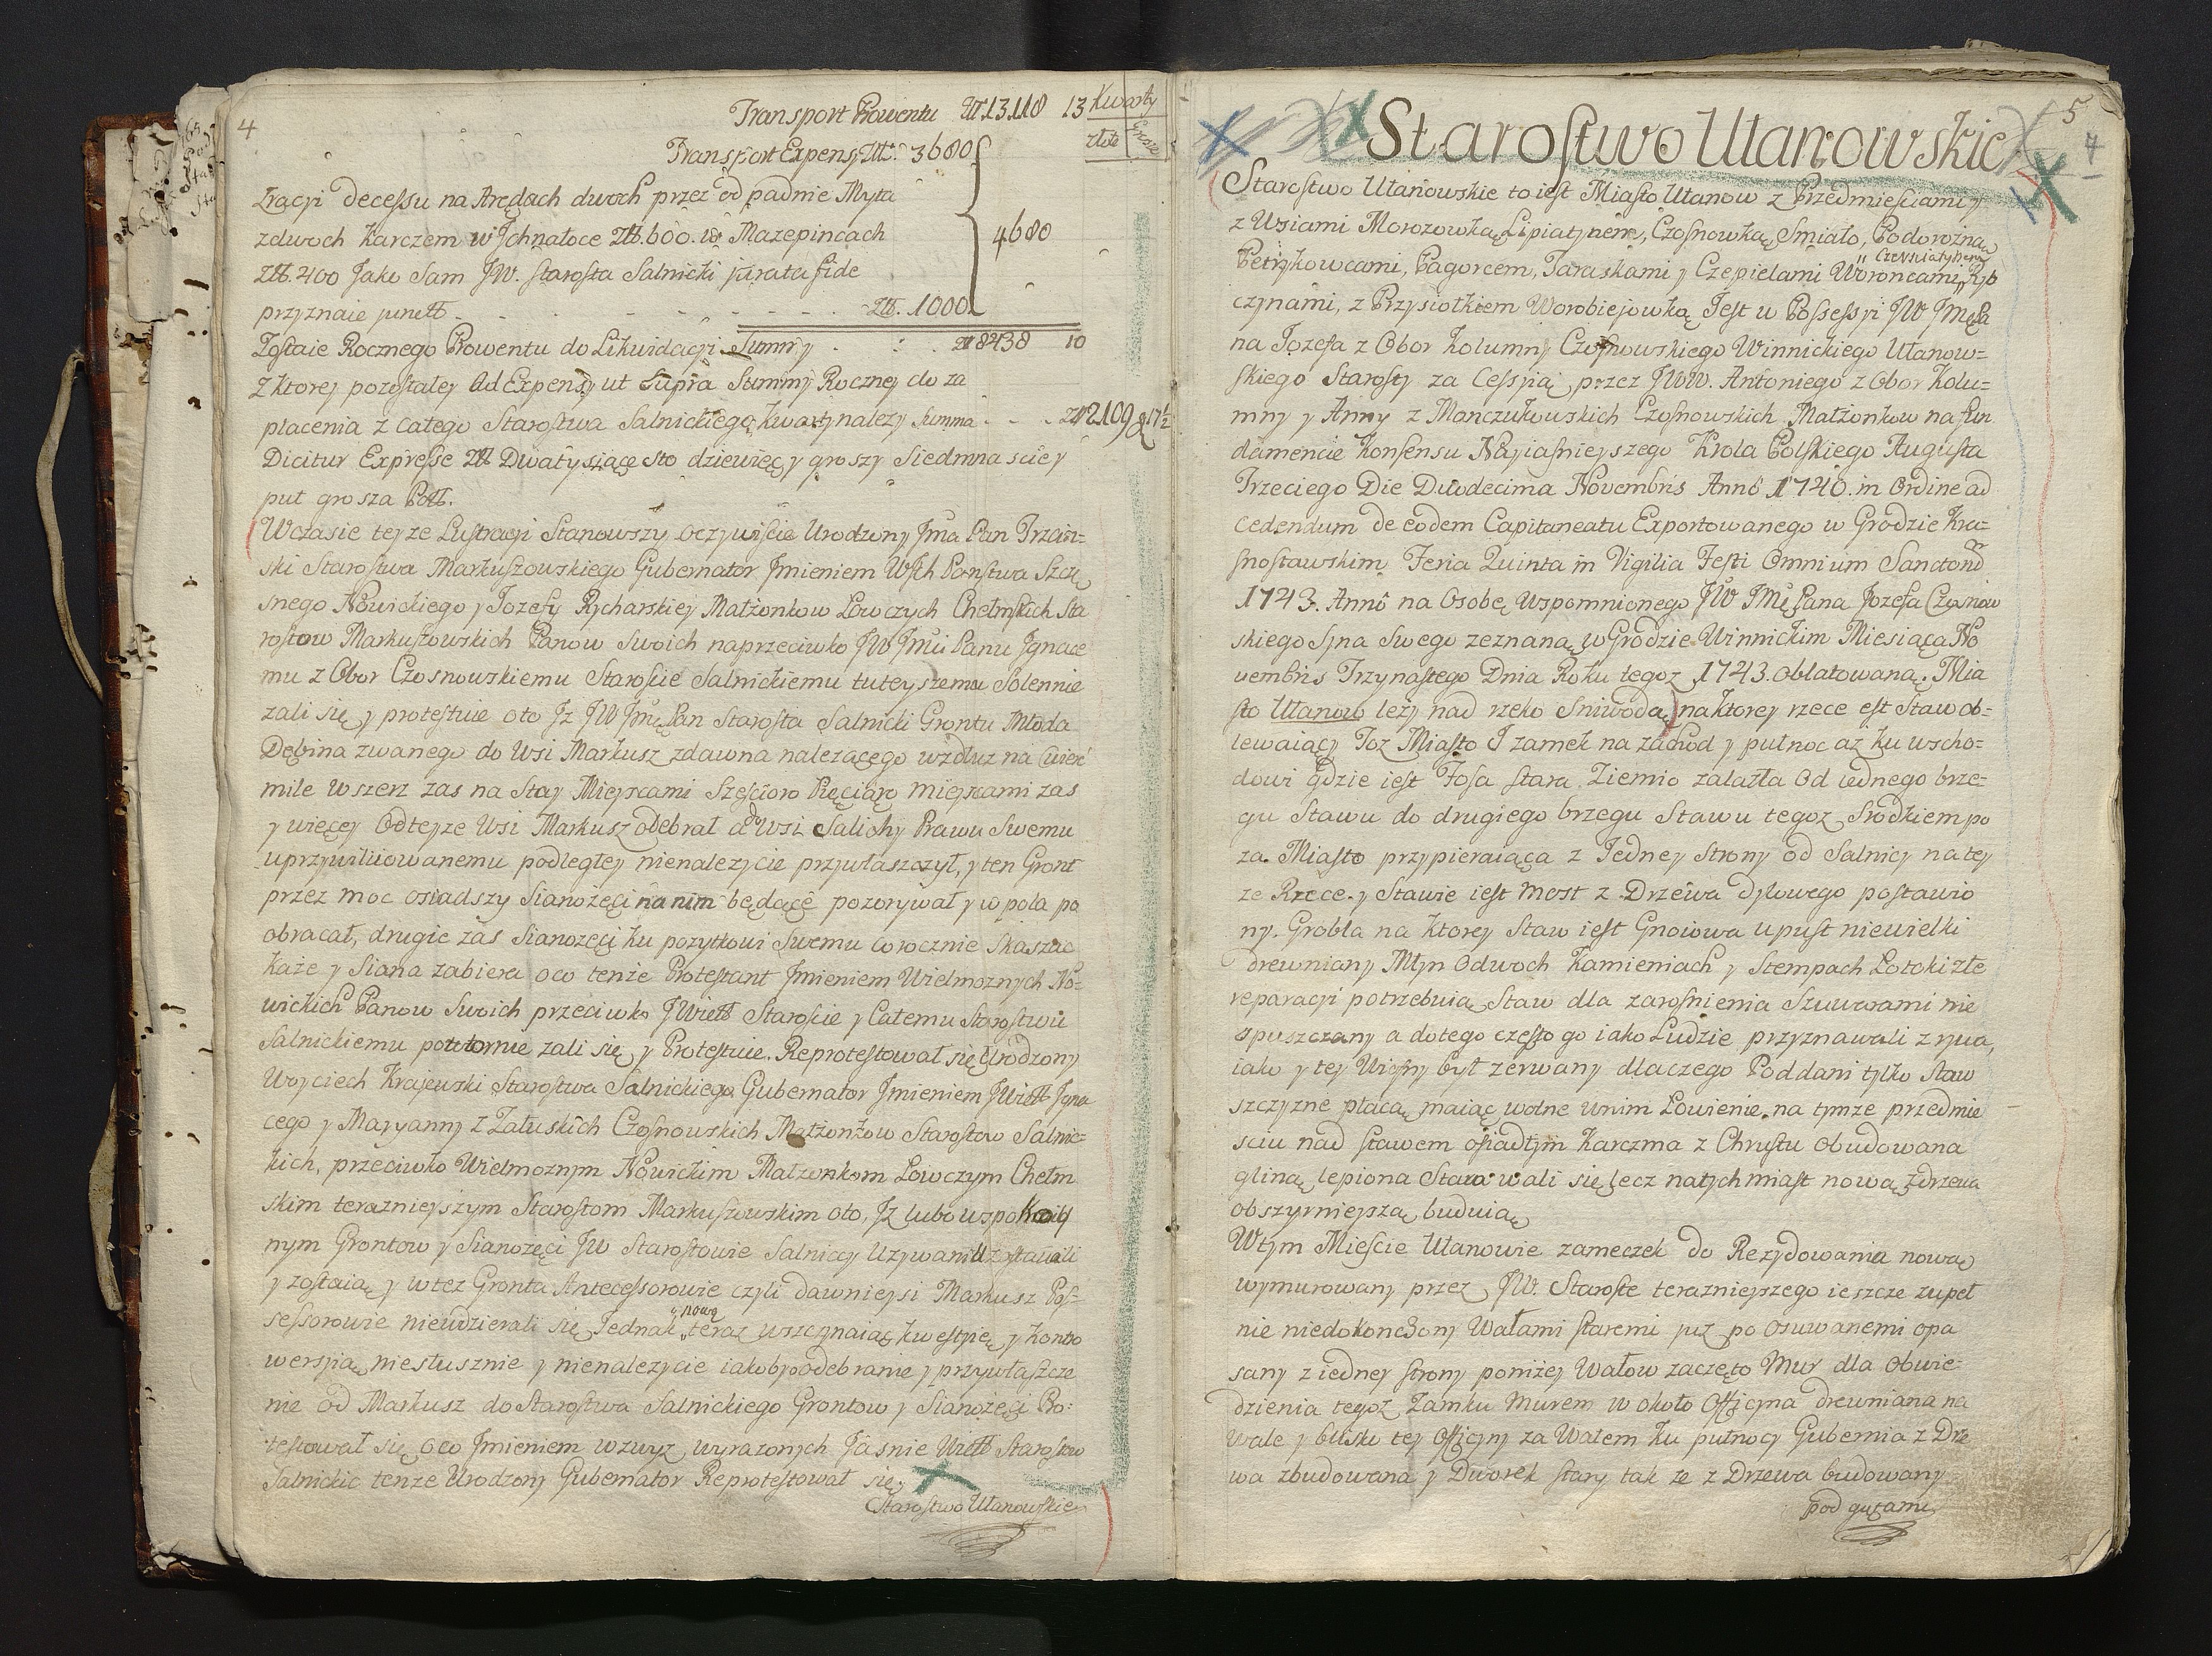 4
Transport Prowentu Zlł 13118 13 Kwarty
Transport Expensy Złł. 3680 złote Grosze
Zracyi decessu na Arędach dwoch przez odpadnie Myta
zdwoch karczem w Jchnatoce Złł. 600. w Mazepincach 4680
Złł. 400 Jako Sam JW. starosta Salnicki jurata fide
przyznaie junctt - - - - - - - Złł. 1000
Zostaie Rocznego Prowentu do Likwidacyi Summy . . . zł 8438 10
Z ktorey pozostałey Ad Expensy ut supra Summy Roczney do za
płacenia z całego Starostwa Salnickiego kwarty nalezy Summa - - - Zł 2109 g 17½
Dicitur Expresse Złł Dwatysiącę sto dziewięć y groszy Siedmnascie y
puł grosza Poll.
Wczasie teyze Lustracyi Stanowszy oczywiscie Urodzony Jma Pan Trzcin=
ski Starostwa Markuszowskiego Gubernator Jmieniem Wsch Panstwa Szczę
snego Nowickiego y Jozefy Rycharskiey Małżonkow Łowczych Chełmskich Sta
rostow Markuszowskich Panow Swoich naprzeciwko JW Jmci Panu Jgnace
mu z Obor Czosnowskiemu Staroscie Salnickiemu tuteyszemu Solennie
zali się y protestuie oto Jz JW Jmć Pan Starosta Salnicki Grontu Młoda
Dębina zwanego do Wsi Markusz zdawna nalezącego wzdłuz na cwierć
mile wszerz zas na Stay Mieyscami Szescioro Pięcioro mieyscami zas
y więcey Odteyze Wsi Markusz odebrał a do Wsi Salichy Prawu Swemu
uprzywiliiowanemu podległey nienalezycie przywłaszczył, y ten Gront
przez moc osiadszy Sianożęci na nim będącę pozorywał y w pola po
obracał, drugie zaś Sianozęci ku pozytkowi Swemu corocznie Skaszac
każe y Siana zabiera oco tenże Protestant Jmieniem Wielmoznych No=
wickich Panow Swoich przeciwko JWielł Staroscie y Całemu Starostwu
Salnickiemu powtornie zali się y Protestuie. Reprotestował się Urodzony
Woyciech Krajewski Starostwa Salnickiego Gubernator Jmieniem JWiell Jgna
cego y Maryanny z Załuskich Czosnowskich Małżonkow Starostow Salnic=
kich, przeciwko Wielmoznym Nowickim Małzonkom Łowczym Chełm
skim terazniejszym Starostom Markuszowskim oto, Jz lubo w spokoiy
nym Grontow y Sianozęci JW Starostowie Salniccy Uzywaniu zostawali
y zostaią y w tez Gronta Antecessorowie czyli dawnieysi Markusz Pos=
sessorowie nieudzierali się Jednak teraz nową wszczynaiąc kwestyię y Kontro
wersyią niesłusznie y nienalezycie iakoby odebranie y przywłaszcze
nie od Markusz do Starostwa Salnickiego Grontow y Sianożęci Pro=
testował się oco Jmieniem wzwyz wyrazonych Jasnie Wiell Starostow
Salnickic tenze Urodzony Gubernator Reprotestował się
Starostwo Ułanowskie
5
4
Starostwo Ułanowskie
Starostwo Ułanowskie to iest Miasto Ułanow z Przedmiesciami y
z Wsiami Morozowką, Lipiatynem, Czosnowką, Smiało, Podorożną
Petrykowcami, Pagorcem, Taraskami y Czepielami Woroncami, Czerniatynem Ryb
czynami, z Przysiołkiem Worobiejowką Jest w Possessyi JW Jmę Pa
na Jozefa z Obor Kolumny Czosnowskiego Winnickiego Ułanow=
skiego Starosty za Cessyią przez JWW. Antoniego z Obor Kolu=
mny y Anny z Manczukowskich Czosnowskich Małżonkow na fun
damencie Konsensu Nayiasnieyszego Krola Polskiego Augusta
Trzeciego Die Duodecima Novembris Annô 1740. in Ordine ad
cedendum de eodem Capitaneatu Exportowanego w Grodzie Kra=
snostawskim Feria Quinta in Vigilia Festi Omnium Sanctorū
1743. Annô na Osobę Wspomnionego JW JMę Pana Jozefa Czosnow
skiego Syna Swego zeznaną, w Grodzie Winnickim Miesiąca No
vembris Trzynastego Dnia Roku tegoz 1743. oblatowaną. Mia
sto Ułanow leży nad rzeko Sniwodą na ktorey rzece est Staw ob=
lewaiący Toż Miasto I zamek na zachod y pułnoc aż ku wscho=
dowi gdzie iest Fosa stara Ziemio zalazła Od iednego brze=
gu Stawu do drugiego brzegu Stawu tegoz Srodkiem po
za. Miasto przypieraiąca z Jedney strony od Salnicy na tey
ze Rzece y Stawie iest Most z Drzewa dylowego postawio
ny. Grobla na ktorey Staw iest Gnoiowa upust niewielki
drewniany Młyn Odwoch Kamieniach y Stempach Łotoki złe
reparacyi potrzebuią Staw dla zarosnienia Szuwarami nie
spuszczany a dotego często go iako Ludzie przyznawali zrywa,
iako y tey Wiosny był zerwany dlaczego Poddani tylko staw
szczyzne płacą maiąc wolne wnim Łowienie. na tymze przedmie
sciu nad stawem osiadłym Karczma z Chrustu obudowana
gliną lepiona Stara wali się lecz natychmiast nową zdrzewa
obszyrnieyszą buduią
Wtym Miescie Ułanowie zameczek do Rezydowania nowo
wymurowany przez JW. Staroste teraznieyszego ieszcze zupeł
nie niedokonczony Wałami staremi juz po osuwanemi opa
sany z iedney strony poniżey Wałow zaczęto Mur dla obwie=
dzienia tegoz Zamku murem w około Officyna drewniana na
wale y blisko tey Officyny za Wałem ku pułnocy Gubernia z Drze
wa zbudowana y Dworek stary tak ze z Drzewa budowany
pod gątami